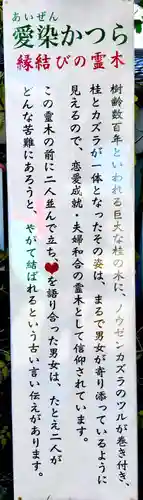 あいぜん
愛染かつら
縁結びの霊木
樹齢数百年といわれる巨大な桂の木に、ノウゼンカズラのツルが巻き付き、
桂とカズラが一体となったその姿は、まるで男女が寄り添っているように
見えるので、恋愛成就・夫婦和合の霊木として信仰されています。
この霊木の前に二人並んで立ち、❤を語り合った男女は、たとえ二人が
どんな苦難にあろうと、やがて結ばれるという古い言い伝えがあります。